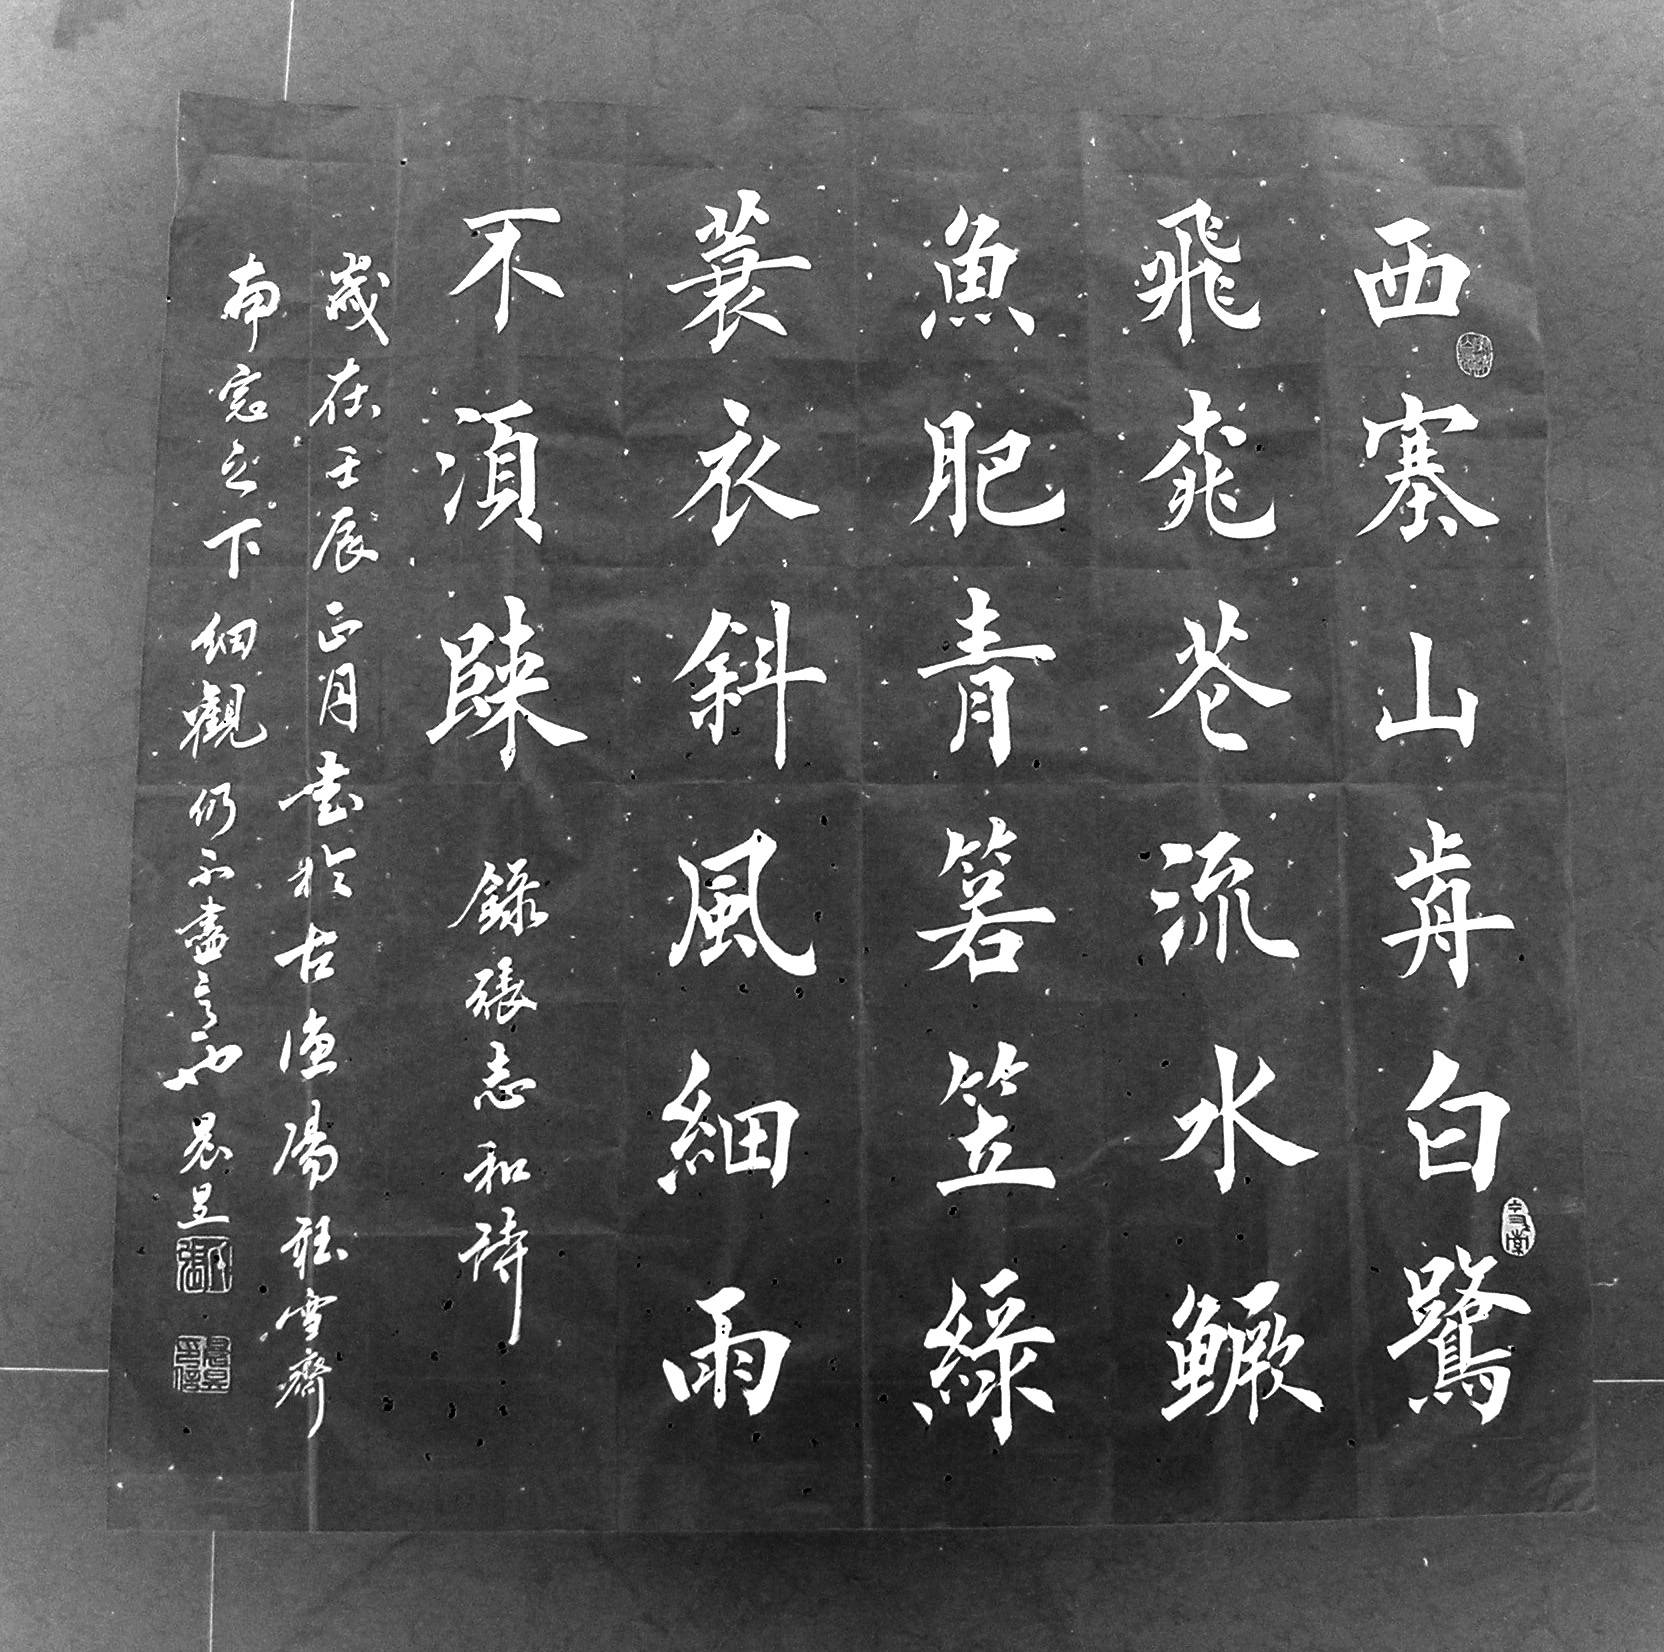 西塞山歬白鷺
飛桃花流水鱖
魚肥青箬笠綠
蓑衣斜風細雨
不須歸 錄張志和詩
歲在壬辰正月書於古漁陽雪齋
南窓之下細觀仍不盡意也晨昱